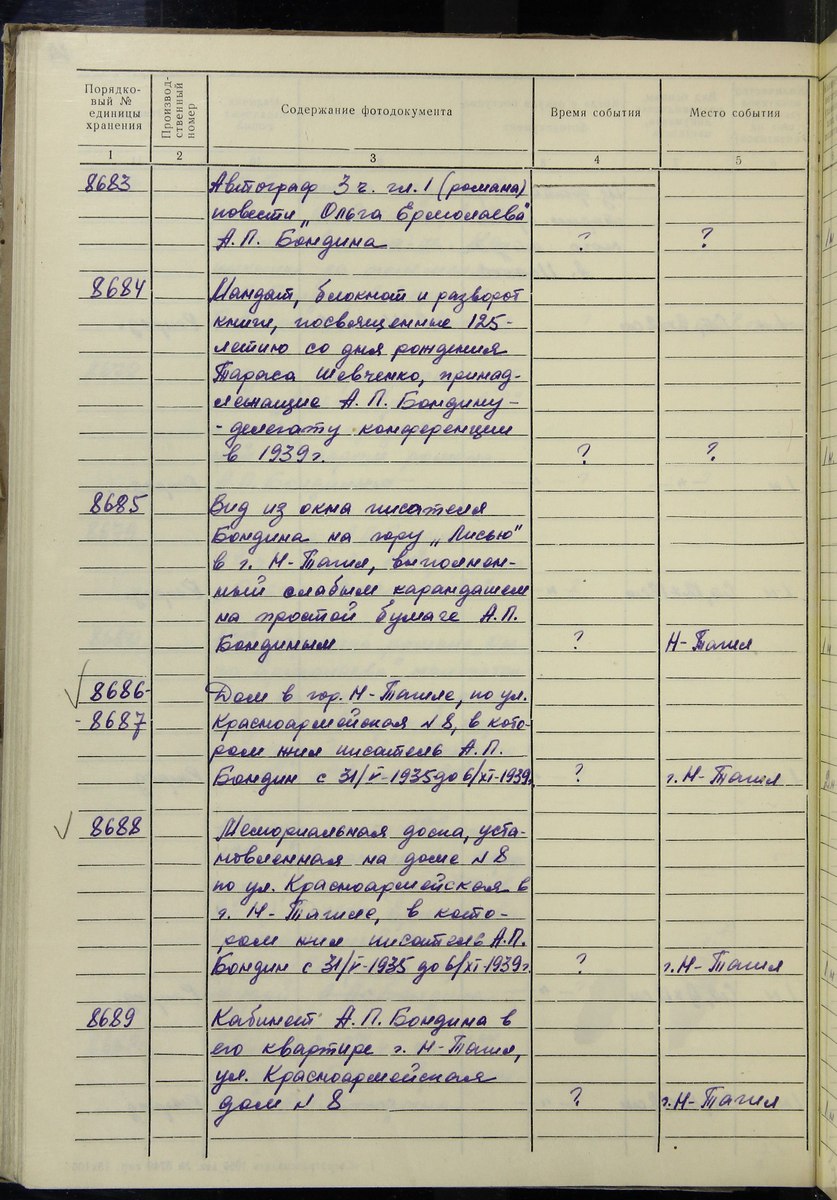 Порядко-
вый №
единицы
хранения
Производ-
ственный
номер
Содержание фотодокумента
Время события
Место события
1 2 3 4 5
8683 Автограф 3 ч. гл. 1 (романа)
повести „Ольга Ермолаева"
А.П. Бондина ? ?
8684 Мандат, блокнот и разворот
книги, посвященные 125-
летию со дня рождения
Тараса Шевченко, принад-
лежащие А.П. Бондину -
- делегату конференции
в 1939 г. ? ?
8685 Вид из окна писателя
Бондина на гору „Лисью"
в г. Н-Тагил, выполнен-
ный слабым карандашем
на простой бумаге А.П.
Бондиным ? Н-Тагил
8686- Дом в гор. Н-Тагиле, по ул.
-8687 Красноармейская № 8, в кото-
ром жил писатель А.П.
Бондин с 31/V-1935 до 6/XI-1939. ? г. Н-Тагил
8688 Мемориальная доска, уста-
новленная на доме № 8
по ул. Красноармейская в
г. Н-Тагиле, в кото-
ром жил писатель А.П.
Бондин с 31/V-1935 до 6/XI-1939 г. ? г. Н-Тагил
8689 Кабинет А.П. Бондина в
его квартире г. Н-Тагил,
ул. Красноармейская
дом № 8 ? г. Н-Тагил